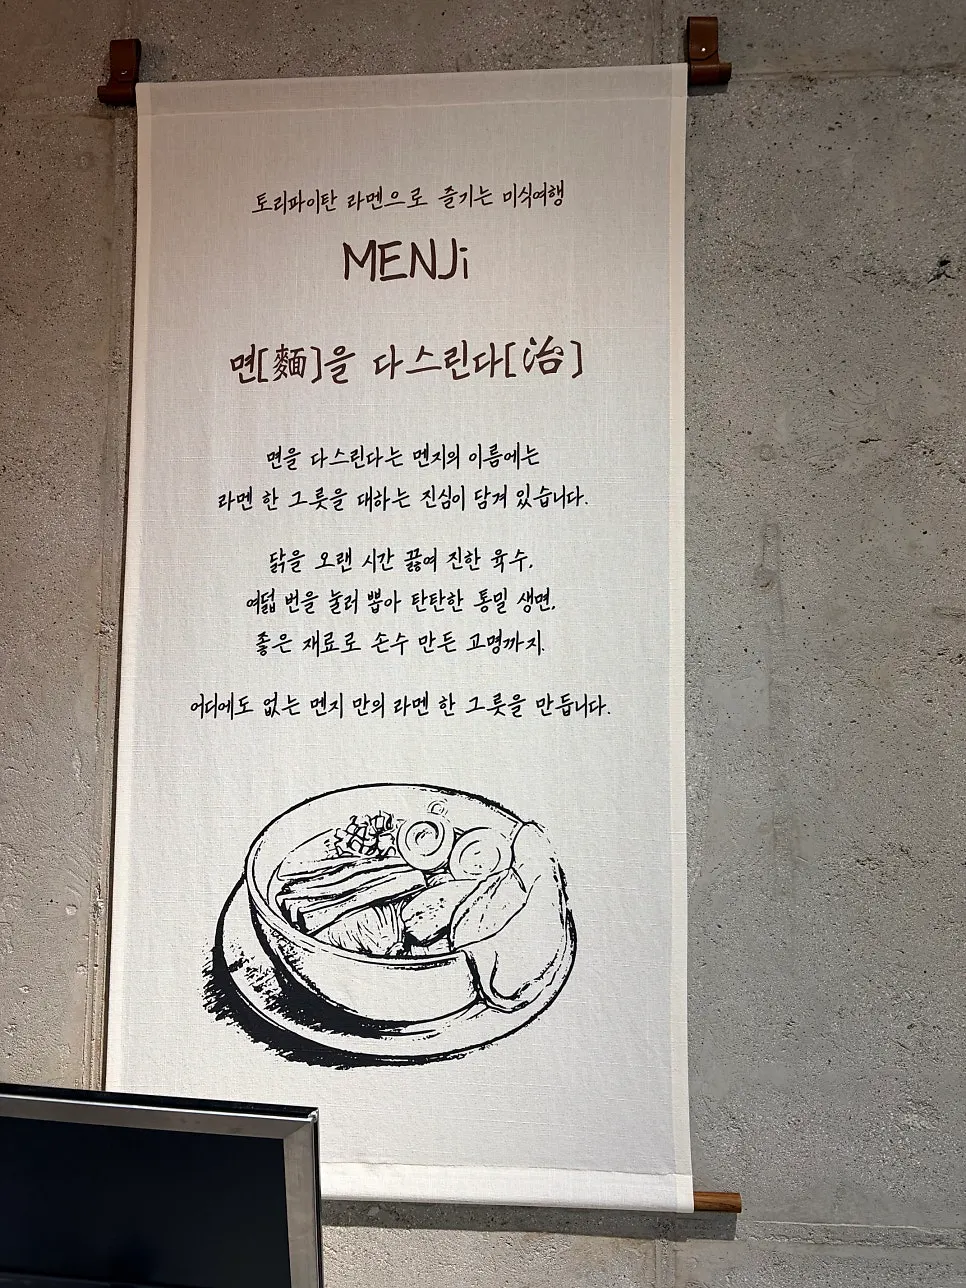 토리파이탄 라멘으로 즐기는 미식여행
MENJi
면[麵]을 다스린다[治]
면을 다스린다는 멘지의 이름에는
라멘 한 그릇을 대하는 진심이 담겨 있습니다.
닭을 오랜 시간 끓여 진한 육수,
여덟 번을 눌러 뽑아 탄탄한 통밀 생면,
좋은 재료로 손수 만든 고명까지.
어디에도 없는 멘지 만의 라멘 한 그릇을 만듭니다.